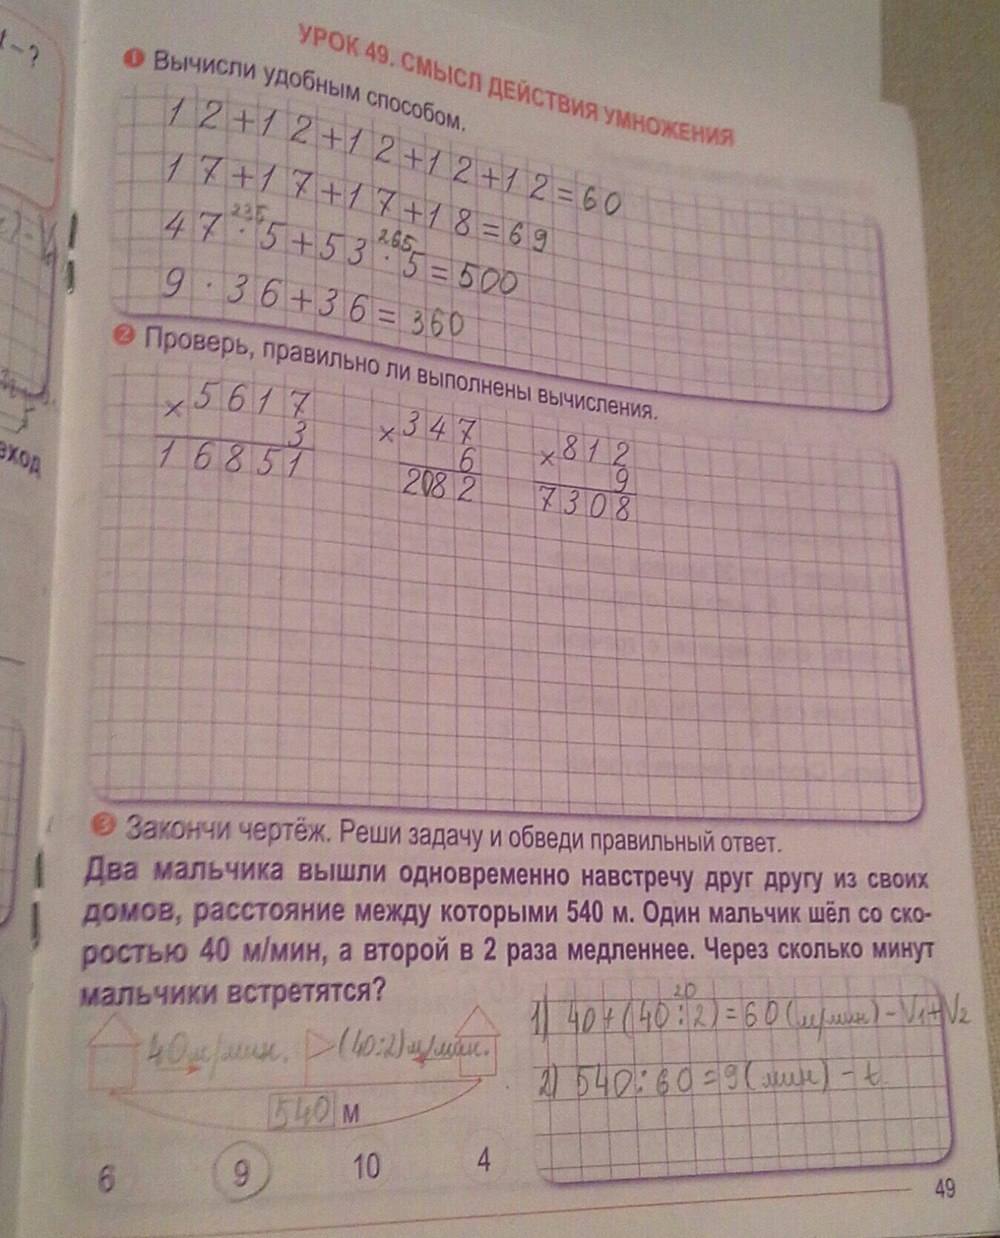 t – ?
УРОК 49. СМЫСЛ ДЕЙСТВИЯ УМНОЖЕНИЯ
1 Вычисли удобным способом.
12+12+12+12+12=60
17+17+17+18=69
235 265
47·5+53·5=500
9·36+36=360
2 Проверь, правильно ли выполнены вычисления.
× 5617 × 347 × 812
3 6 9
16851 2082 7308
3 Закончи чертёж. Реши задачу и обведи правильный ответ.
Два мальчика вышли одновременно навстречу друг другу из своих
домов, расстояние между которыми 540 м. Один мальчик шёл со ско-
ростью 40 м/мин, а второй в 2 раза медленнее. Через сколько минут
мальчики встретятся?
20
1) 40+(40:2)=60(м/мин) – V1+V2
40м/мин. (40:2)м/мин.
2) 540:60=9(мин) – t
540 м
6 9 10 4
49